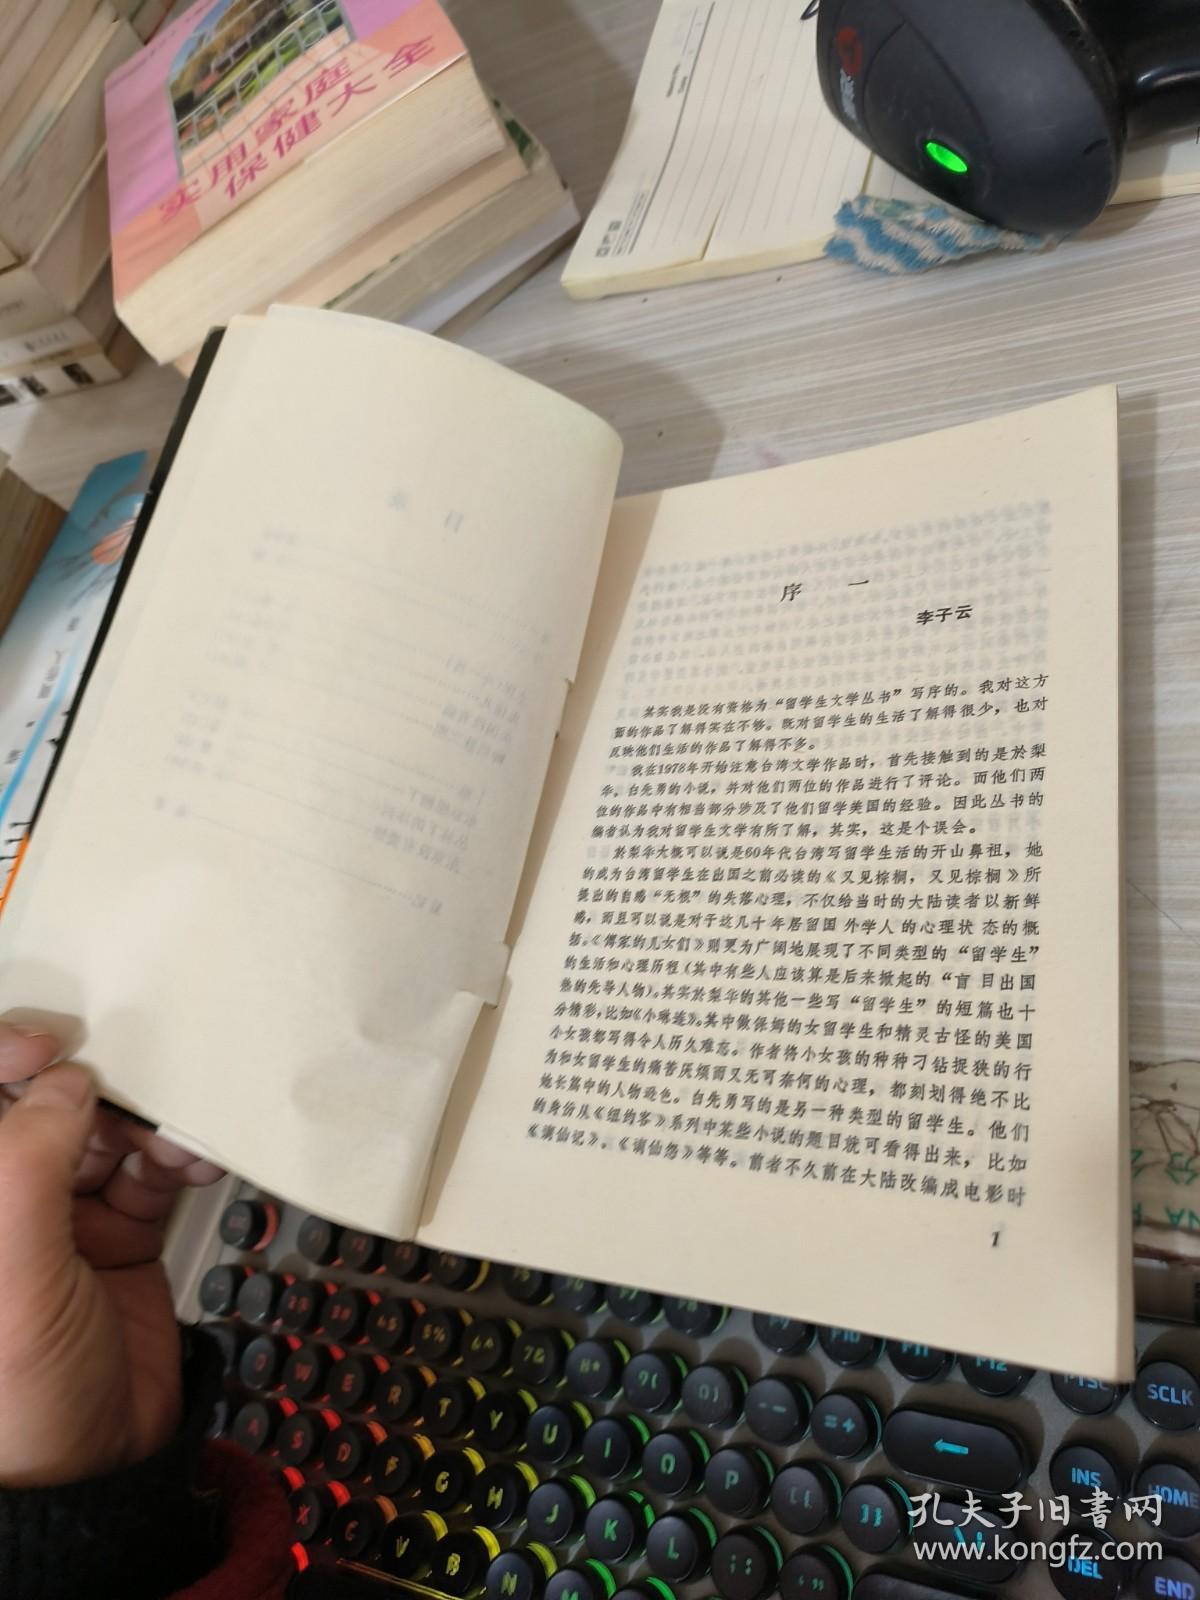 实用家庭
保健大全
目 录
序 一
李子云
其实我是没有资格为“留学生文学丛书”写序的。我对这方
面的作品了解得实在不够。既对留学生的生活了解得很少，也对
反映他们生活的作品了解得不多。
我在1978年开始注意台湾文学作品时，首先接触到的是於梨
华，白先勇的小说，并对他们两位的作品进行了评论。而他们两
位的作品中有相当部分涉及了他们留学美国的经验。因此丛书的
编者认为我对留学生文学有所了解，其实，这是个误会。
於梨华大概可以说是60年代台湾写留学生活的开山鼻祖，她
的成为台湾留学生在出国之前必读的《又见棕榈，又见棕榈》所
提出的自感“无根”的失落心理，不仅给当时的大陆读者以新鲜
感，而且可以说是对于这几十年居留国外学人的心理状态的概
括。《傅家的儿女们》则更为广阔地展现了不同类型的“留学生”
的生活和心理历程（其中有些人应该算是后来掀起的“盲目出国
热的先导人物）。其实於梨华的其他一些写“留学生”的短篇也十
分精彩，比如《小琳达》。其中做保姆的女留学生和精灵古怪的美国
小女孩都写得令人历久难忘。作者将小女孩的种种刁钻捉狭的行
为和女留学生的痛苦厌烦而又无可奈何的心理，都刻划得绝不比
她长篇中的人物逊色。白先勇写的是另一种类型的留学生。他们
的身份从《纽约客》系列中某些小说的题目就可看得出来，比如
《谪仙记》、《谪仙怨》等等。前者不久前在大陆改编成电影时
1
F9
F10
F11
F12
PTSC
SCLK
INS
HOME
DEL
END
Q W E R T Y U I O P
A S D F G H J K L
X C V B N M
孔夫子旧书网
www.kongfz.com